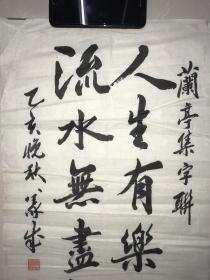 蘭亭集字聯
人生有樂
流水無盡
乙亥晚秋